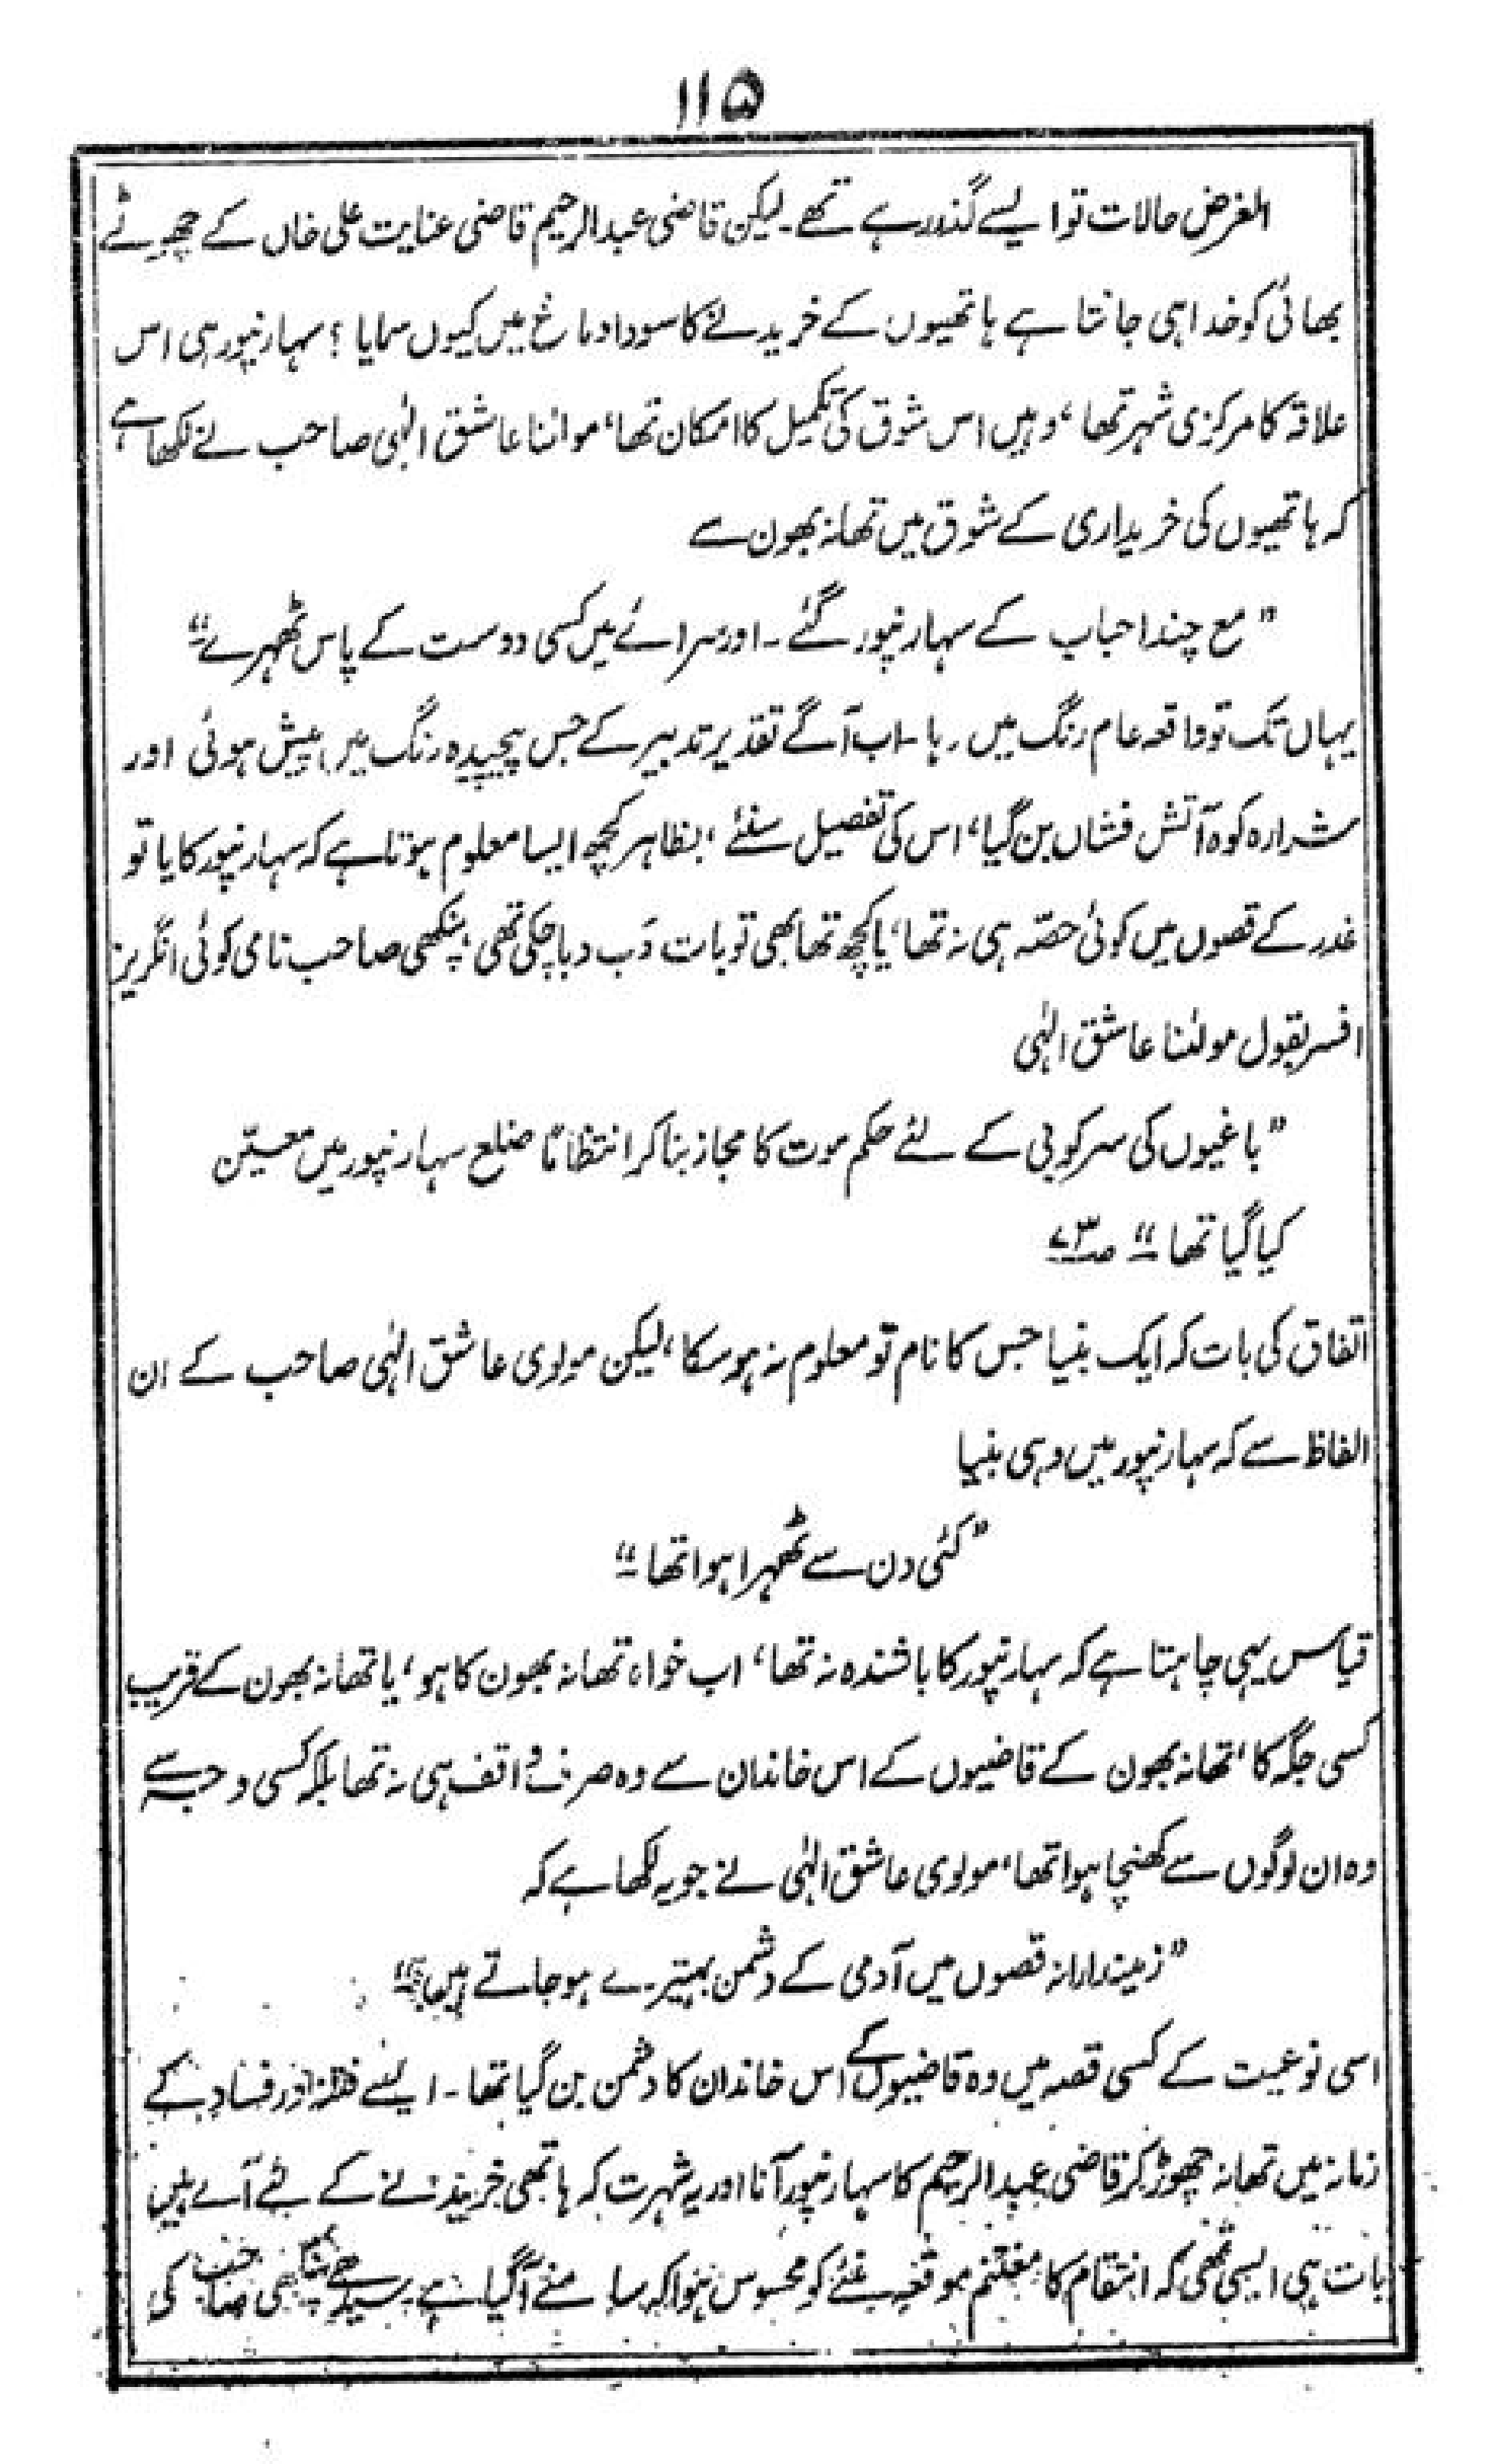 ۱۱۵
الغرض حالات تو ایسے گذر رہے تھے۔ لیکن قاضی عبدالرحیم قاضی عنایت علی خاں کے چھوٹے
بھائی کو خدا ہی جانتا ہے ہاتھیوں کے خریدنے کا سودا دماغ میں کیوں سمایا ؟ سہارنپور ہی اس
علاقہ کا مرکزی شہر تھا، وہیں اس شوق کی تکمیل کا امکان تھا، مولٰنا عاشق الٰہی صاحب نے لکھا ہے
کہ ہاتھیوں کی خریداری کے شوق میں تھانہ بھون سے
” مع چند احباب کے سہارنپور گئے۔ اور سرائے میں کسی دوست کے پاس ٹھہرے“
یہاں تک تو واقعہ عام رنگ میں رہا۔ اب آگے تقدیر تدبیر کے جس پیچیدہ رنگ میں پیش ہوئی اور
شرارہ کوہ آتش فشاں بن گیا، اس کی تفصیل سنئے ، بظاہر کچھ ایسا معلوم ہوتا ہے کہ سہارنپور کا یا تو
غدر کے قصوں میں کوئی حصّہ ہی نہ تھا، یا کچھ تھا بھی تو بات دَب دبا چکی تھی ، پنکھی صاحب نامی کوئی انگریز
افسر بقول مولٰنا عاشق الٰہی
” باغیوں کی سرکوبی کے لئے حکم موت کا مجاز بنا کر انتظاماً ضلع سہارنپور میں معیّن
کیا گیا تھا “ صـ۷۳
اتفاق کی بات کہ ایک بنیا جس کا نام تو معلوم نہ ہو سکا، لیکن مولوی عاشق الٰہی صاحب کے ان
الفاظ سے کہ سہارنپور میں وہی بنیا
” کئی دن سے ٹھہرا ہوا تھا “
قیاس یہی چاہتا ہے کہ سہارنپور کا باشندہ نہ تھا، اب خواہ تھانہ بھون کا ہو، یا تھانہ بھون کے قریب
کسی جگہ کا، تھانہ بھون کے قاضیوں کے اس خاندان سے وہ صرف واقف ہی نہ تھا بلکہ کسی وجہ سے
وہ ان لوگوں سے کھنچا ہوا تھا، مولوی عاشق الٰہی نے جو یہ لکھا ہے کہ
” زمیندارانہ قصوں میں آدمی کے دشمن بہتیرے ہو جاتے ہیں“
اسی نوعیت کے کسی قصہ میں وہ قاضیوں کے اس خاندان کا دشمن بن گیا تھا۔ ایسے فتنہ اور فساد کے
زمانہ میں تھانہ چھوڑ کر قاضی عبدالرحیم کا سہارنپور آنا اور یہ شہرت کہ ہاتھی خریدنے کے لئے آئے ہیں
بات ہی ایسی تھی کہ انتقام کا مغتنم موقعہ بنئے کو محسوس ہوا کہ سامنے آگیا ہے۔ سیدھے پنکھی صاحب کی